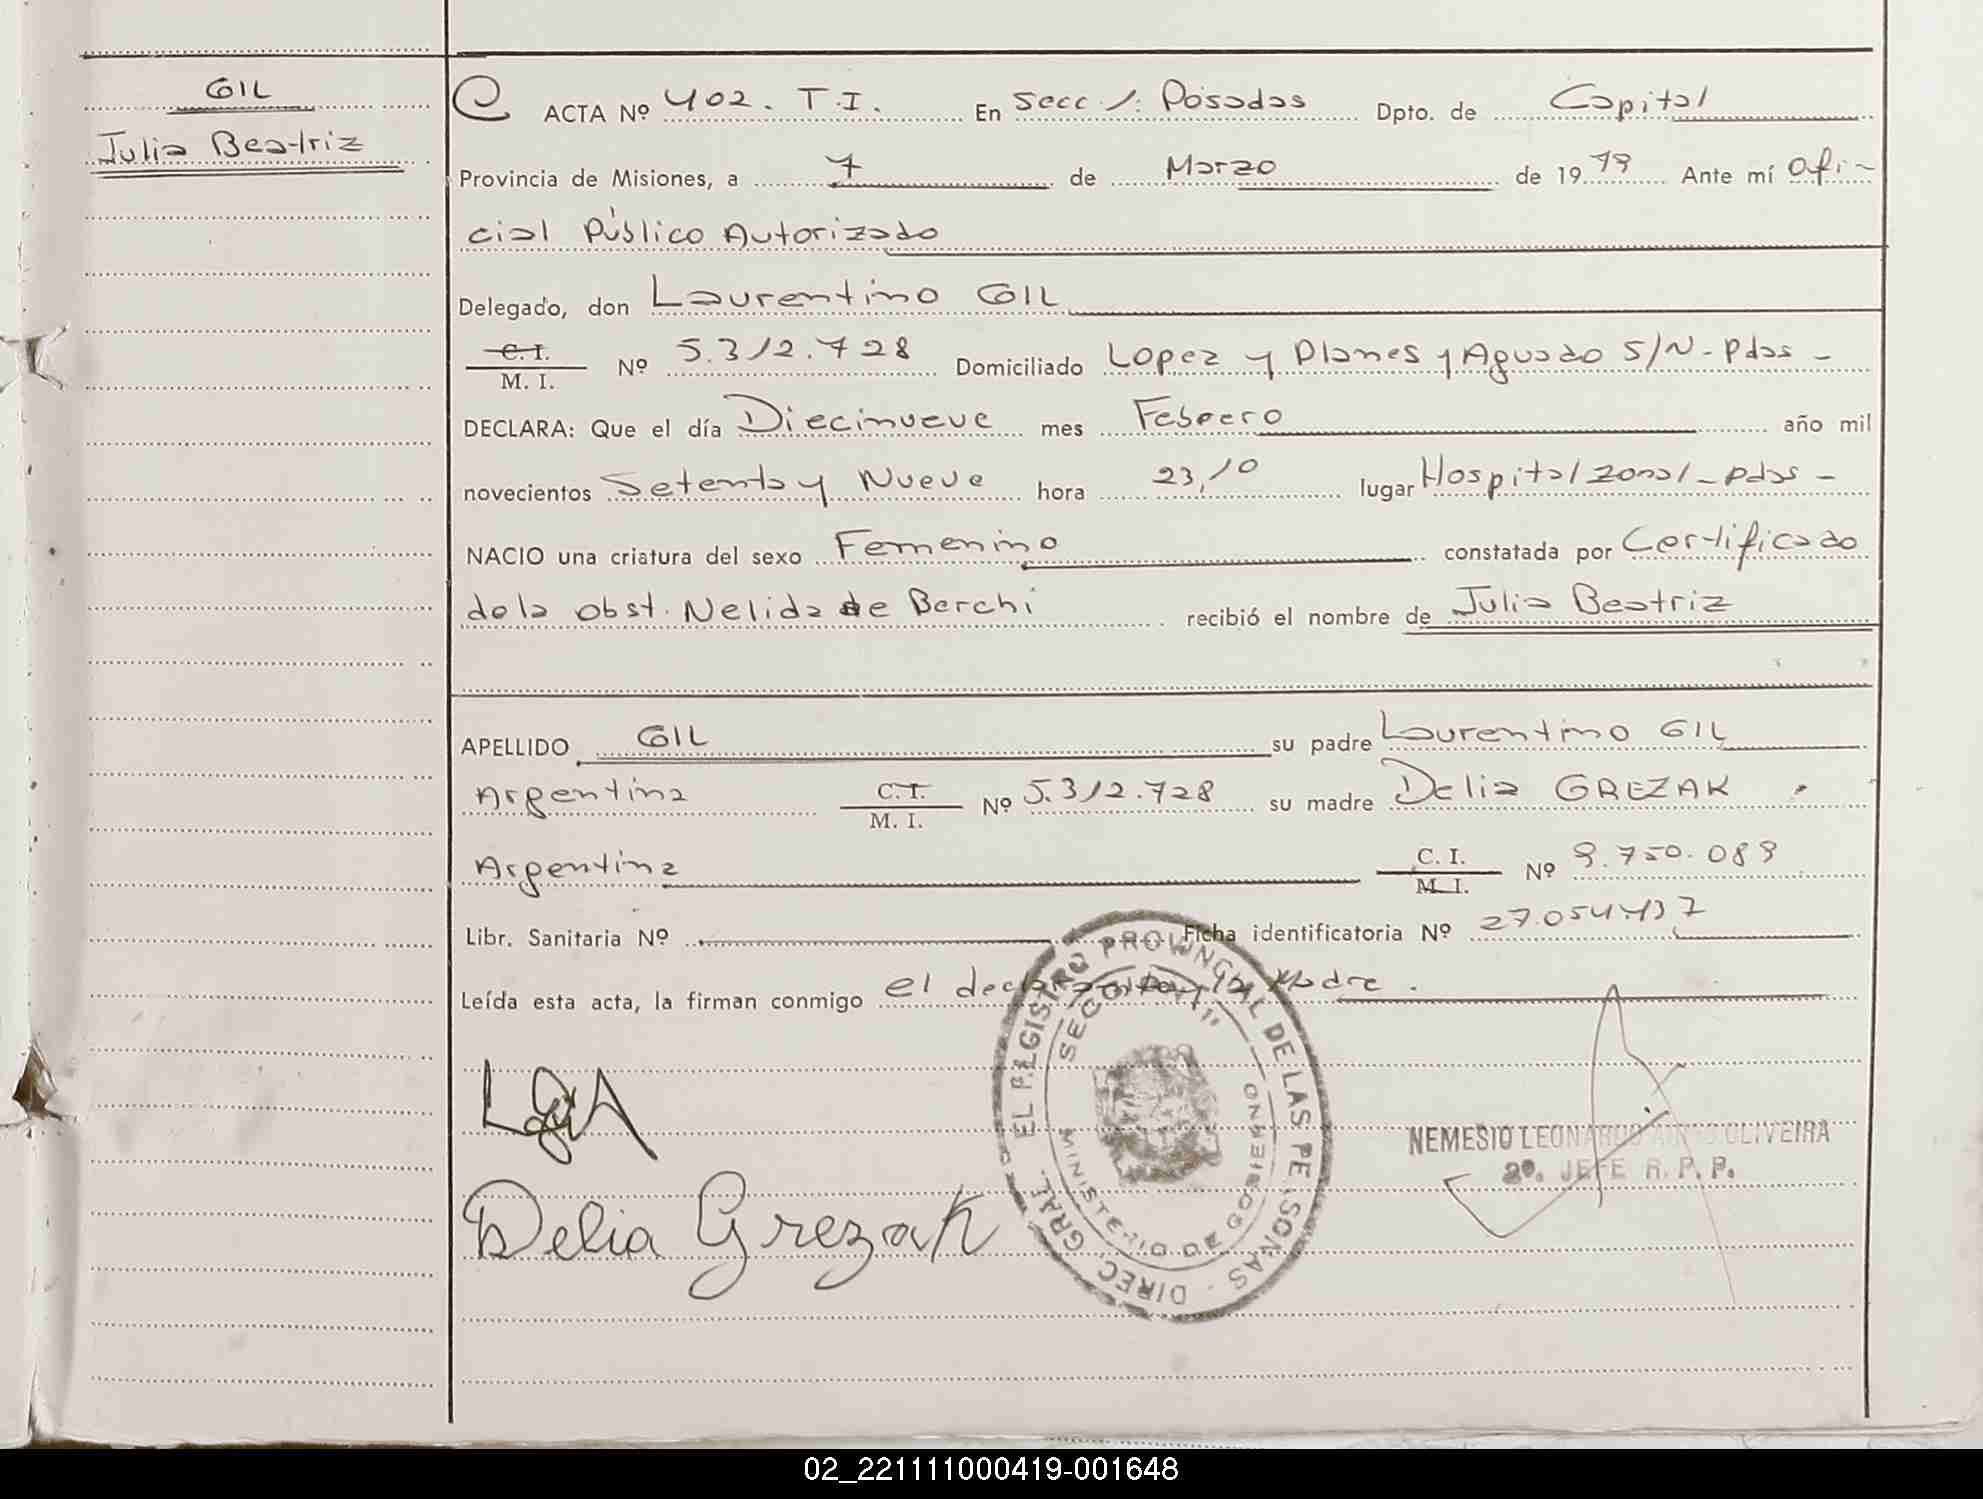 GIL
Julia Beatriz
ACTA Nº 402. T.I. En Secc 1: Posadas Dpto. de Capital
Provincia de Misiones, a 7 de Marzo de 1979 Ante mí Ofi-
cial Público Autorizado
Delegado, don Laurentino GIL
C. I.
M. I. Nº 5.312.728 Domiciliado Lopez y Planes y Aguado S/N - Pdas -
DECLARA: Que el día Diecinueve mes Febrero año mil
novecientos Setenta y Nueve hora 23,10 lugar Hospital Zonal - Pdas -
NACIO una criatura del sexo Femenino constatada por Certificado
de la obst. Nelida de Berchi recibió el nombre de Julia Beatriz
APELLIDO GIL su padre Laurentino GIL
Argentina C. I.
M. I. Nº 5.312.728 su madre Delia GREZAK
Argentina C. I.
M. I. Nº 9.750.089
Libr. Sanitaria Nº Ficha identificatoria Nº 27.054.437
Leída esta acta, la firman conmigo el declarante y la Madre.
DIREC. GRAL. EL REGISTRO PROVINCIAL DE LAS PERSONAS
MINISTERIO DE GOBIERNO
NEMESIO LEONARDO OLIVEIRA
2º. JEFE R. P. P.
Delia Grezak
02_221111000419-001648